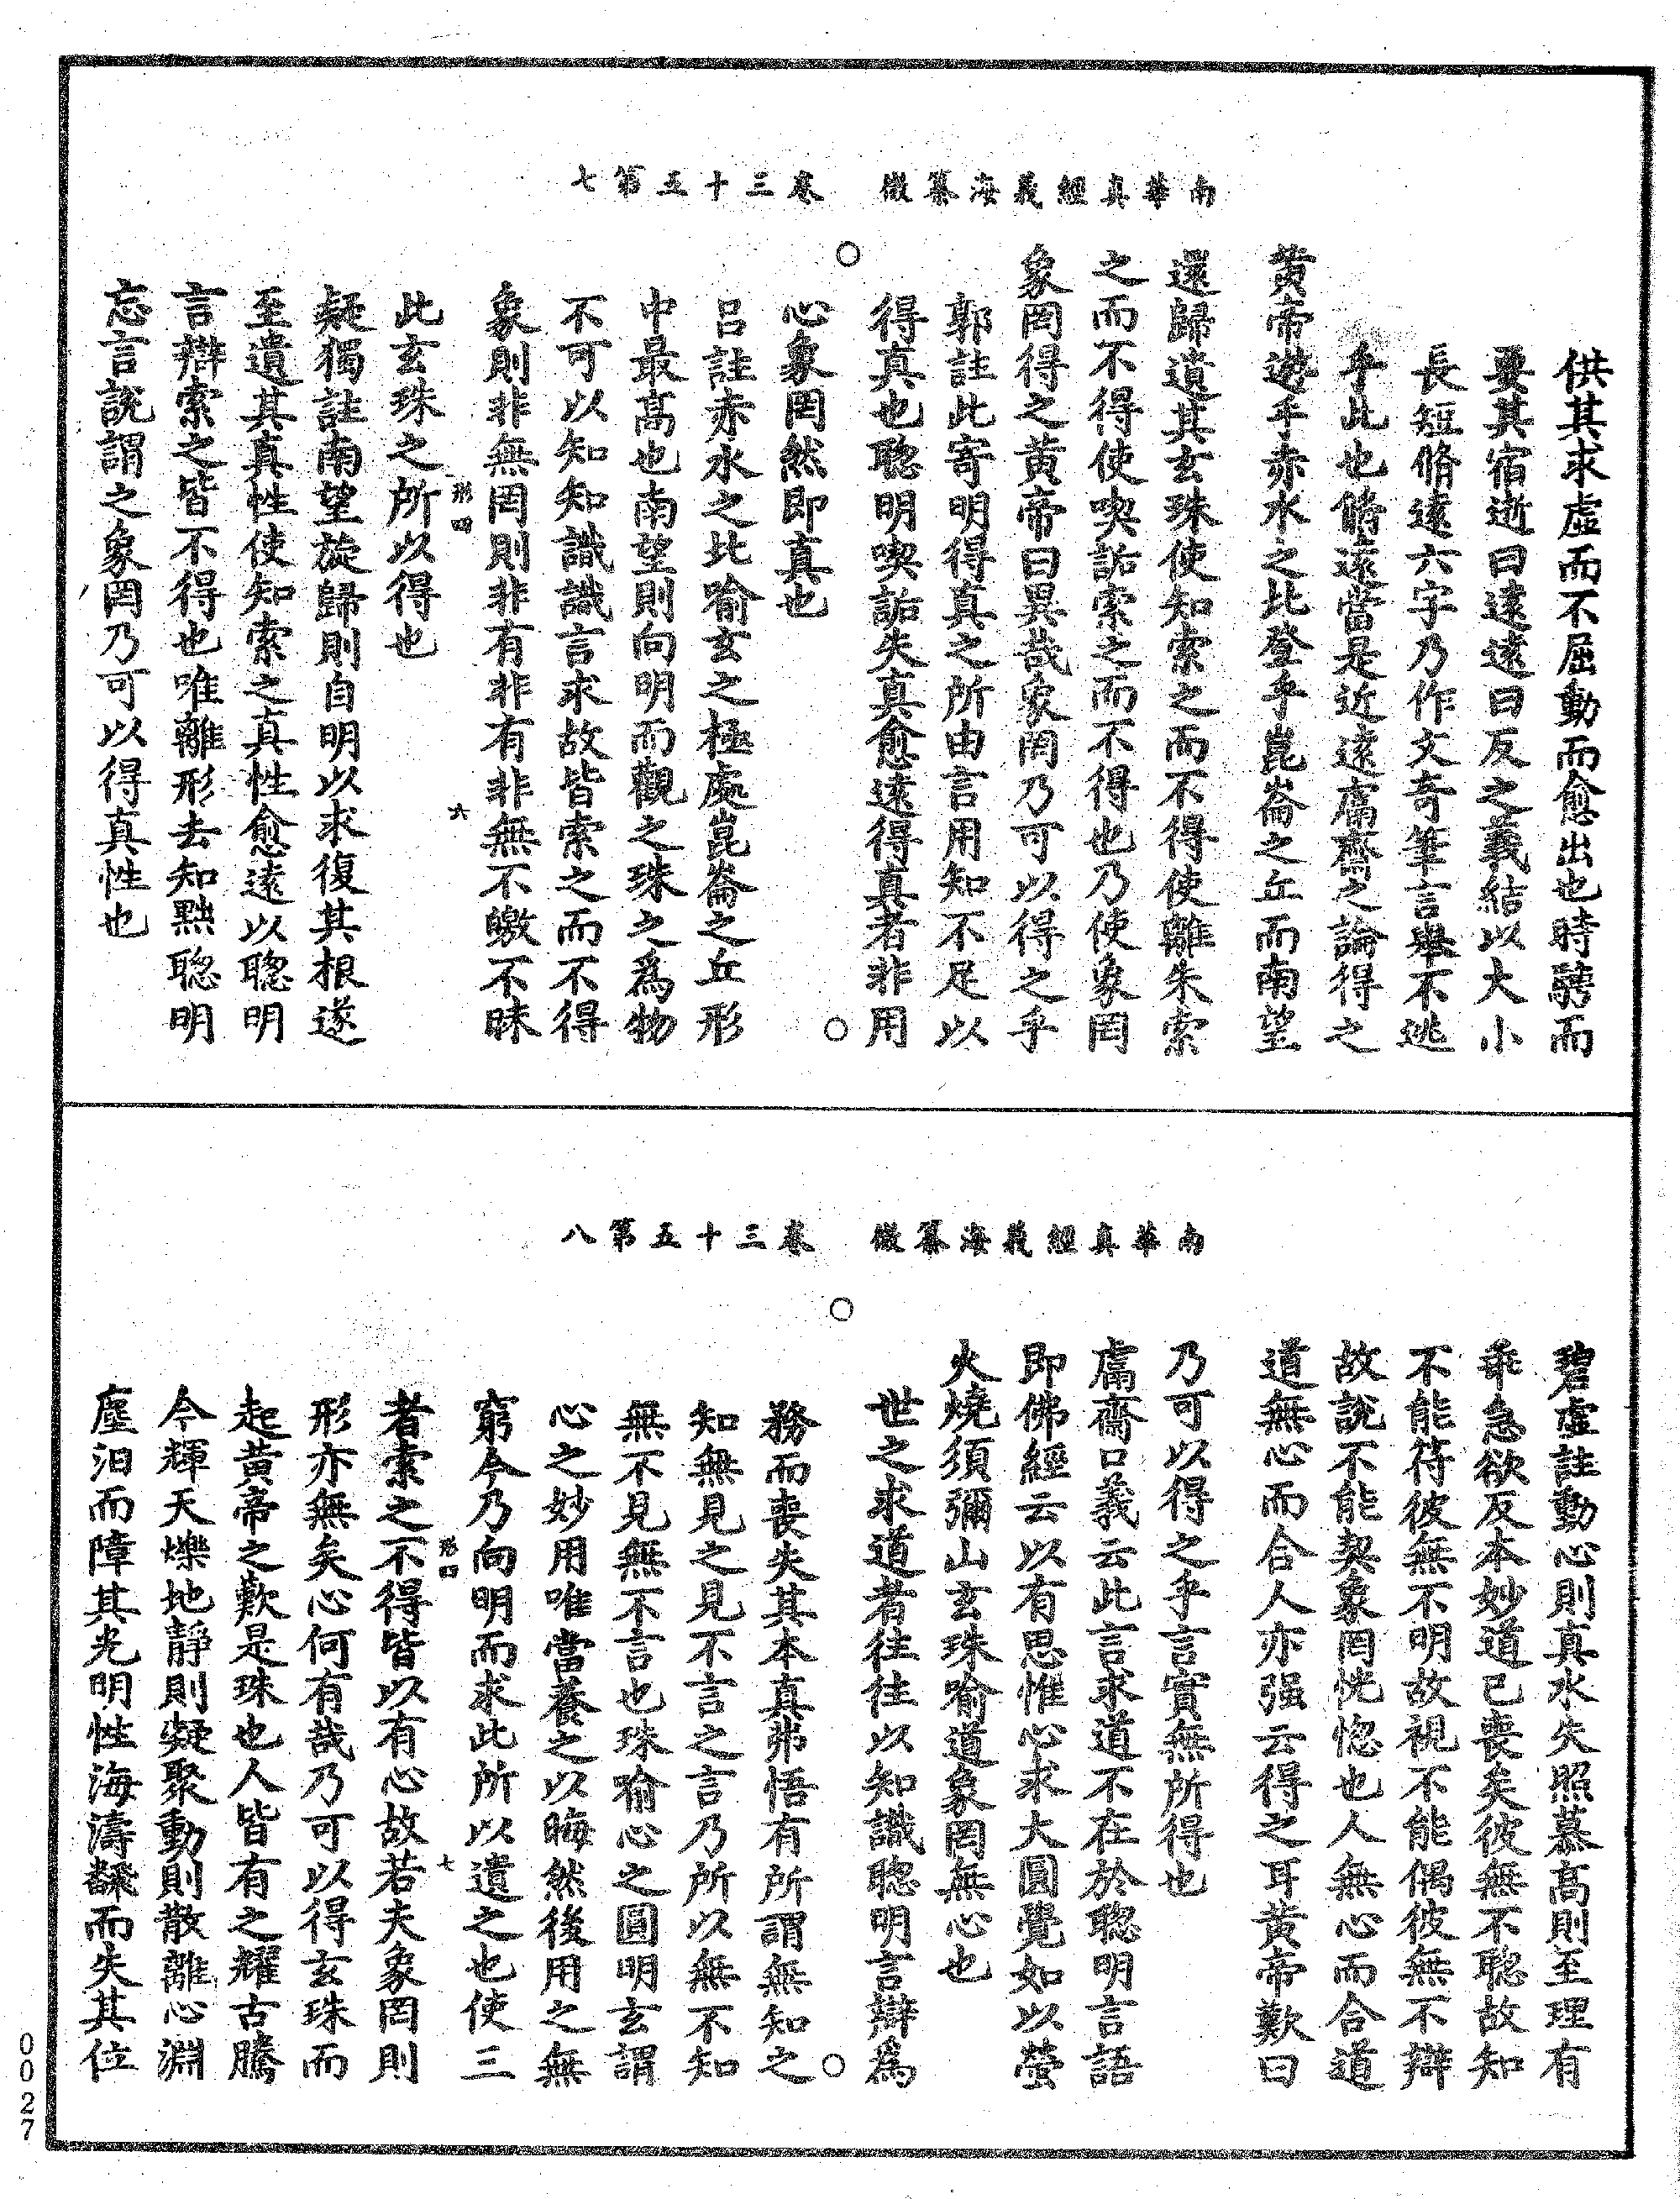 南華真經義海纂微　卷三十五第七
供其求虛而不屈動而愈出也時騁而
要其宿逝曰遠遠曰反之義結以大小
長短脩遠六字乃作文奇筆言舉不逃
乎此也脩遠當是近遠鬳齋之論得之
黃帝遊乎赤水之北登乎崑崙之丘而南望
還歸遺其玄珠使知索之而不得使離朱索
之而不得使喫詬索之而不得也乃使象罔
象罔得之黃帝曰異哉象罔乃可以得之乎
郭註此寄明得真之所由言用知不足以
得真也聰明喫詬失真愈遠得真者非用
心象罔然即真也
呂註赤水之北喻玄之極處崑崙之丘形
中最高也南望則向明而觀之珠之為物
不可以知知識識言求故皆索之而不得
象則非無罔則非有非有非無不皦不昧
形四　六
此玄珠之所以得也
疑獨註南望旋歸則自明以求復其根遂
至遺其真性使知索之真性愈遠以聰明
言辯索之皆不得也唯離形去知黜聰明
忘言說謂之象罔乃可以得真性也
南華真經義海纂微　卷三十五第八
碧虛註動心則真水失照慕高則至理有
乖急欲反本妙道已喪矣彼無不聰故知
不能符彼無不明故視不能偶彼無不辯
故說不能契象罔恍惚也人無心而合道
道無心而合人亦强云得之耳黃帝歎曰
乃可以得之乎言實無所得也
鬳齋口義云此言求道不在於聰明言語
即佛經云以有思惟心求大圓覺如以螢
火燒須彌山玄珠喻道象罔無心也
世之求道者往往以知識聰明言辯為
務而喪失其本真弗悟有所謂無知之
知無見之見不言之言乃所以無不知
無不見無不言也珠喻心之圓明玄謂
心之妙用唯當養之以晦然後用之無
窮今乃向明而求此所以遺之也使三
形四　七
者索之不得皆以有心故若夫象罔則
形亦無矣心何有哉乃可以得玄珠而
起黃帝之歎是珠也人皆有之耀古騰
今輝天爍地靜則凝聚動則散離心淵
塵汩而障其光明性海濤飜而失其位
0027